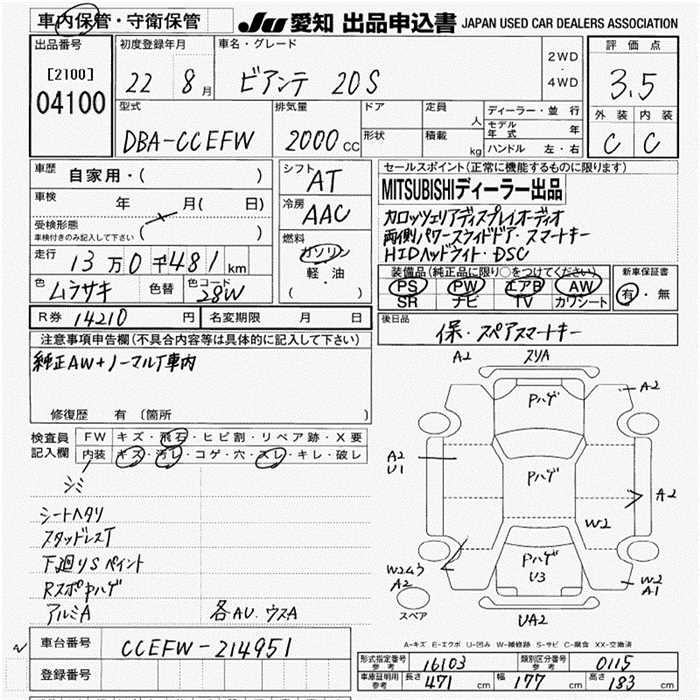 車内保管・守衛保管 JU 愛知 出品申込書 JAPAN USED CAR DEALERS ASSOCIATION
出品番号 初度登録年月 車名・グレード 評価点
[2100] 2WD・4WD
04100 22 8月 ビアンテ 20S 3.5
型式 排気量 ドア 定員 人 ディーラー・並行 外装 内装
DBA-CCEFW 2000cc 形状 積載 kg モデル年式 年 C C
ハンドル 左・右
車歴 自家用・( ) シフト AT セールスポイント(正常に機能するものに限ります)
車検 年 月( 日) 冷房 AAC MITSUBISHIディーラー出品
受検形態 ( ) カロッツェリアディスプレイオーディオ
車検付きのみ記入して下さい 両側パワースライドドア・スマートキー
燃料 ガソリン HIDヘッドライト・DSC
走行 13万0千481km 軽・油 装備品(純正品に限り○をつけてください) 新車保証書
色 ムラサキ 色替 色コード 28W ( ) PS PW エアB AW 有・無
SR ナビ TV カワシート
R券 14210円 名変期限 月 日 後日品
保・スペアスマートキー
注意事項申告欄(不具合内容等は具体的に記入して下さい)
純正AW+ノーマルT車内
修復歴 有〔箇所 〕
検査員記入欄 FW キズ・飛石・ヒビ割・リペア跡・X要
内装 キズ・汚レ・コゲ・穴・スレ・キレ・破レ
シミ
シートヘタリ
スタッドレスT
下廻りSペイント
RスポPハゲ
アルミA 各AU.ウスA
A2 スリA
Pハゲ A2
A2
U1 Pハゲ A2
W2
Pハゲ
U3
A2 W2
A1
スペア UA2
A-キズ E-エクボ U-凹み W-補修跡 S-サビ C-腐食 XX-交換済
車台番号 CCEFW-214951
登録番号
形式指定番号 参考 16103 類別区分番号 参考 0115
車庫証明用 参考 長さ 471cm 幅 177cm 高さ 183cm